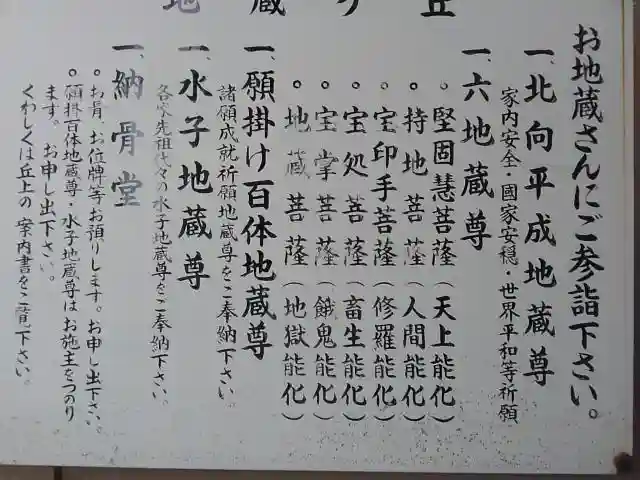 地蔵ヶ丘
お地蔵さんにご参詣下さい。
一、北向平成地蔵尊
家内安全・國家安穏・世界平和等祈願
一、六地蔵尊
。堅固慧菩薩(天上能化)
。持地菩薩(人間能化)
。宝印手菩薩(修羅能化)
。宝処菩薩(畜生能化)
。宝掌菩薩(餓鬼能化)
。地蔵菩薩(地獄能化)
一、願掛け百体地蔵尊
諸願成就祈願地蔵尊をご奉納下さい。
一、水子地蔵尊
各家先祖代々の水子地蔵尊をご奉納下さい。
一、納骨堂
。お骨、お位牌等お預りします。お申し出下さい。
。願掛百体地蔵尊・水子地蔵尊はお施主をつのり
ます。お申し出下さい。
くわしくは丘上の案内書をご覧下さい。